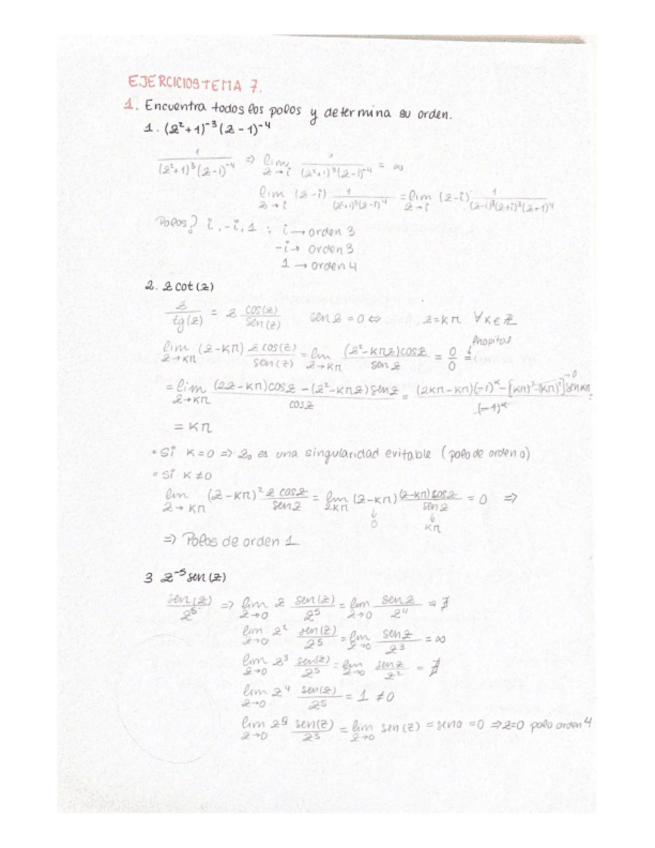 EJERCICIOS TEMA 7.
1. Encuentra todos los polos y determina su orden.
1. (z²+1)⁻³(z-1)⁻⁴
1/((z²+1)³(z-1)⁻⁴) ⇒ lim z→i 1/((z²+1)³(z-1)⁻⁴) = ∞
lim z→i (z-i) 1/((z²+1)³(z-1)⁴) = lim z→i (z-i) 1/((z-i)³(z+i)³(z+1)⁴
Polos? i, -i, 1 : i → orden 3
-i → orden 3
1 → orden 4
2. z cot(z)
z/tg(z) = z cos(z)/sen(z) sen z = 0 ⇔ z = kπ ∀k∈ℤ
lim z→kπ (z-kπ) z cos(z)/sen(z) = lim z→kπ (z²-kπz)cosz/senz = 0/0 = hopital
= lim z→kπ ((2z-kπ)cosz - (z²-kπz)senz)/cosz = ((2kπ-kπ)(-1)ᵏ - [(kπ)²-(kπ)²]senkπ)/(-1)ᵏ → 0
= kπ
• Si k=0 ⇒ z₀ es una singularidad evitable (polo de orden 0)
• Si k≠0
lim z→kπ (z-kπ)² z cosz/senz = lim z→kπ (z-kπ) (z-kπ)cosz/senz = 0 ⇒
↓ 0 ↓ kπ
⇒ Polos de orden 1
3 z⁻⁵sen(z)
sen(z)/z⁵ ⇒ lim z→0 z sen(z)/z⁵ = lim z→0 senz/z⁴ = ∄
lim z→0 z² sen(z)/z⁵ = lim z→0 senz/z³ = ∞
lim z→0 z³ sen(z)/z⁵ = lim z→0 senz/z² = ∄
lim z→0 z⁴ sen(z)/z⁵ = 1 ≠ 0
lim z→0 z⁵ sen(z)/z⁵ = lim z→0 sen(z) = sen0 = 0 ⇒ z=0 polo orden 4